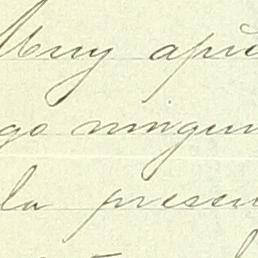 Muy apre
go ningun
la presen